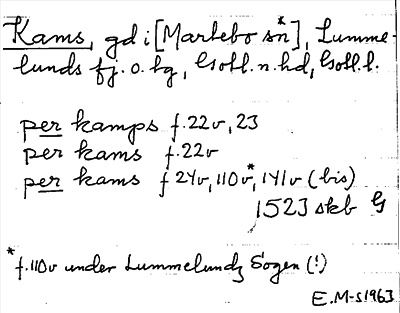 Kams, gd i [Martebo sn*], Lumme-
lunds fj. o. tg, Gotl. n. hd, Gotl. l.
per kamps f. 22v, 23
per kams f. 22v
per kams f 24v, 110v*, 141v (bis)
1523 skb G
* f. 110v under Lummelundz Sogen (!)
E. M-s 1963